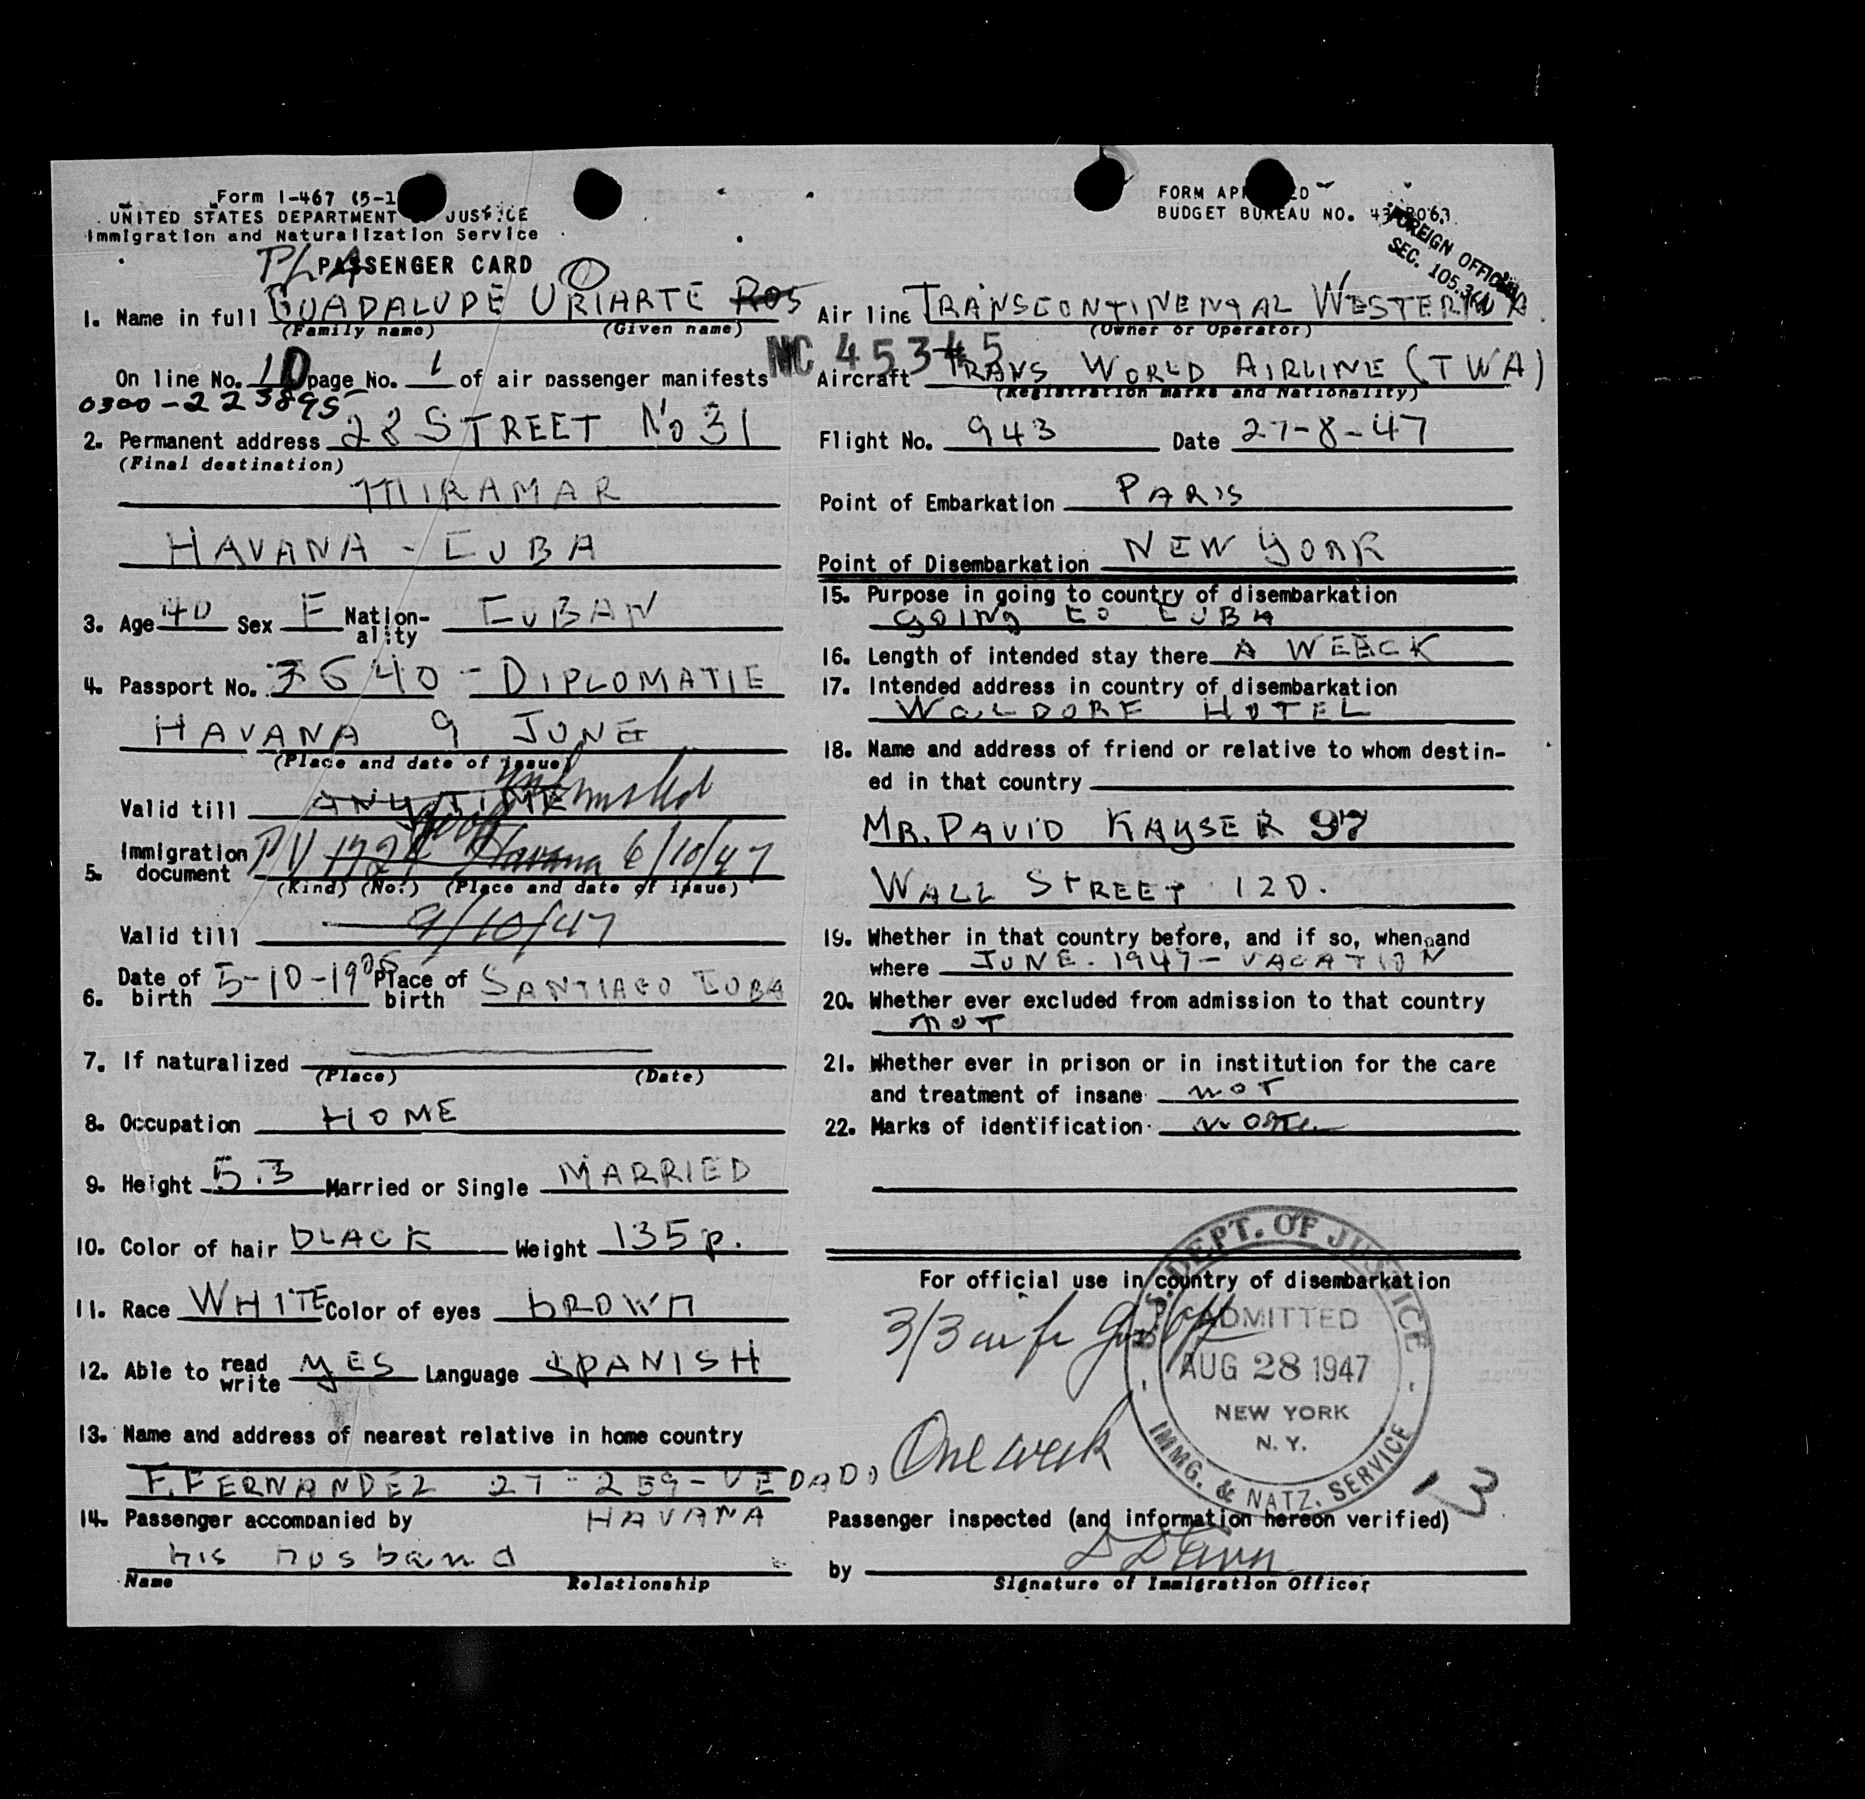 Form I-467 (5-1
UNITED STATES DEPARTMENT OF JUSTICE
Immigration and Naturalization Service
PASSENGER CARD
1. Name in full GUADALUPE URIARTE ROS
(Family name) (Given name)
On line No. 10 page No. 1 of air passenger manifests
0300-223895
2. Permanent address 28 STREET No 31
(Final destination)
MIRAMAR
HAVANA - CUBA
3. Age 40 Sex F Nationality CUBAN
4. Passport No. 3640 - DIPLOMATIE
HAVANA 9 JUNE
(Place and date of issue)
Valid till ANY TIME
5. Immigration document PV 1721 Havana 6/10/47
(Kind) (No.) (Place and date of issue)
Valid till 9/10/47
6. Date of birth 5-10-1906 Place of birth SANTIAGO CUBA
7. If naturalized
(Place) (Date)
8. Occupation HOME
9. Height 5.3 Married or Single MARRIED
10. Color of hair BLACK Weight 135 p.
11. Race WHITE Color of eyes bROWN
12. Able to read write yES Language SPANISH
13. Name and address of nearest relative in home country
F. FERNANDEZ 27 - 259 - VEDADO
HAVANA
14. Passenger accompanied by
his husband
Name Relationship
FORM APPROVED
BUDGET BUREAU NO. 43-R063
FOREIGN OFFICIAL
SEC. 105.3(4)
Air line TRANSCONTINENTAL WESTERN A.
(Owner or Operator)
NC 45345
Aircraft TRANS WORLD AIRLINE (TWA)
(Registration marks and Nationality)
Flight No. 943 Date 27-8-47
Point of Embarkation PARIS
Point of Disembarkation NEW YORK
15. Purpose in going to country of disembarkation
going to CUBA
16. Length of intended stay there A WEECK
17. Intended address in country of disembarkation
WALDORF HOTEL
18. Name and address of friend or relative to whom destin-
ed in that country
MR. DAVID KAYSER 97
WALL STREET 120.
19. Whether in that country before, and if so, when and
where JUNE. 1947 - VACATION
20. Whether ever excluded from admission to that country
NOT
21. Whether ever in prison or in institution for the care
and treatment of insane NOT
22. Marks of identification
For official use in country of disembarkation
3/3
One week
U.S. DEPT. OF JUSTICE
ADMITTED
AUG 28 1947
NEW YORK
N. Y.
IMMG. & NATZ. SERVICE
13
Passenger inspected (and information hereon verified)
by
Signature of Immigration Officer